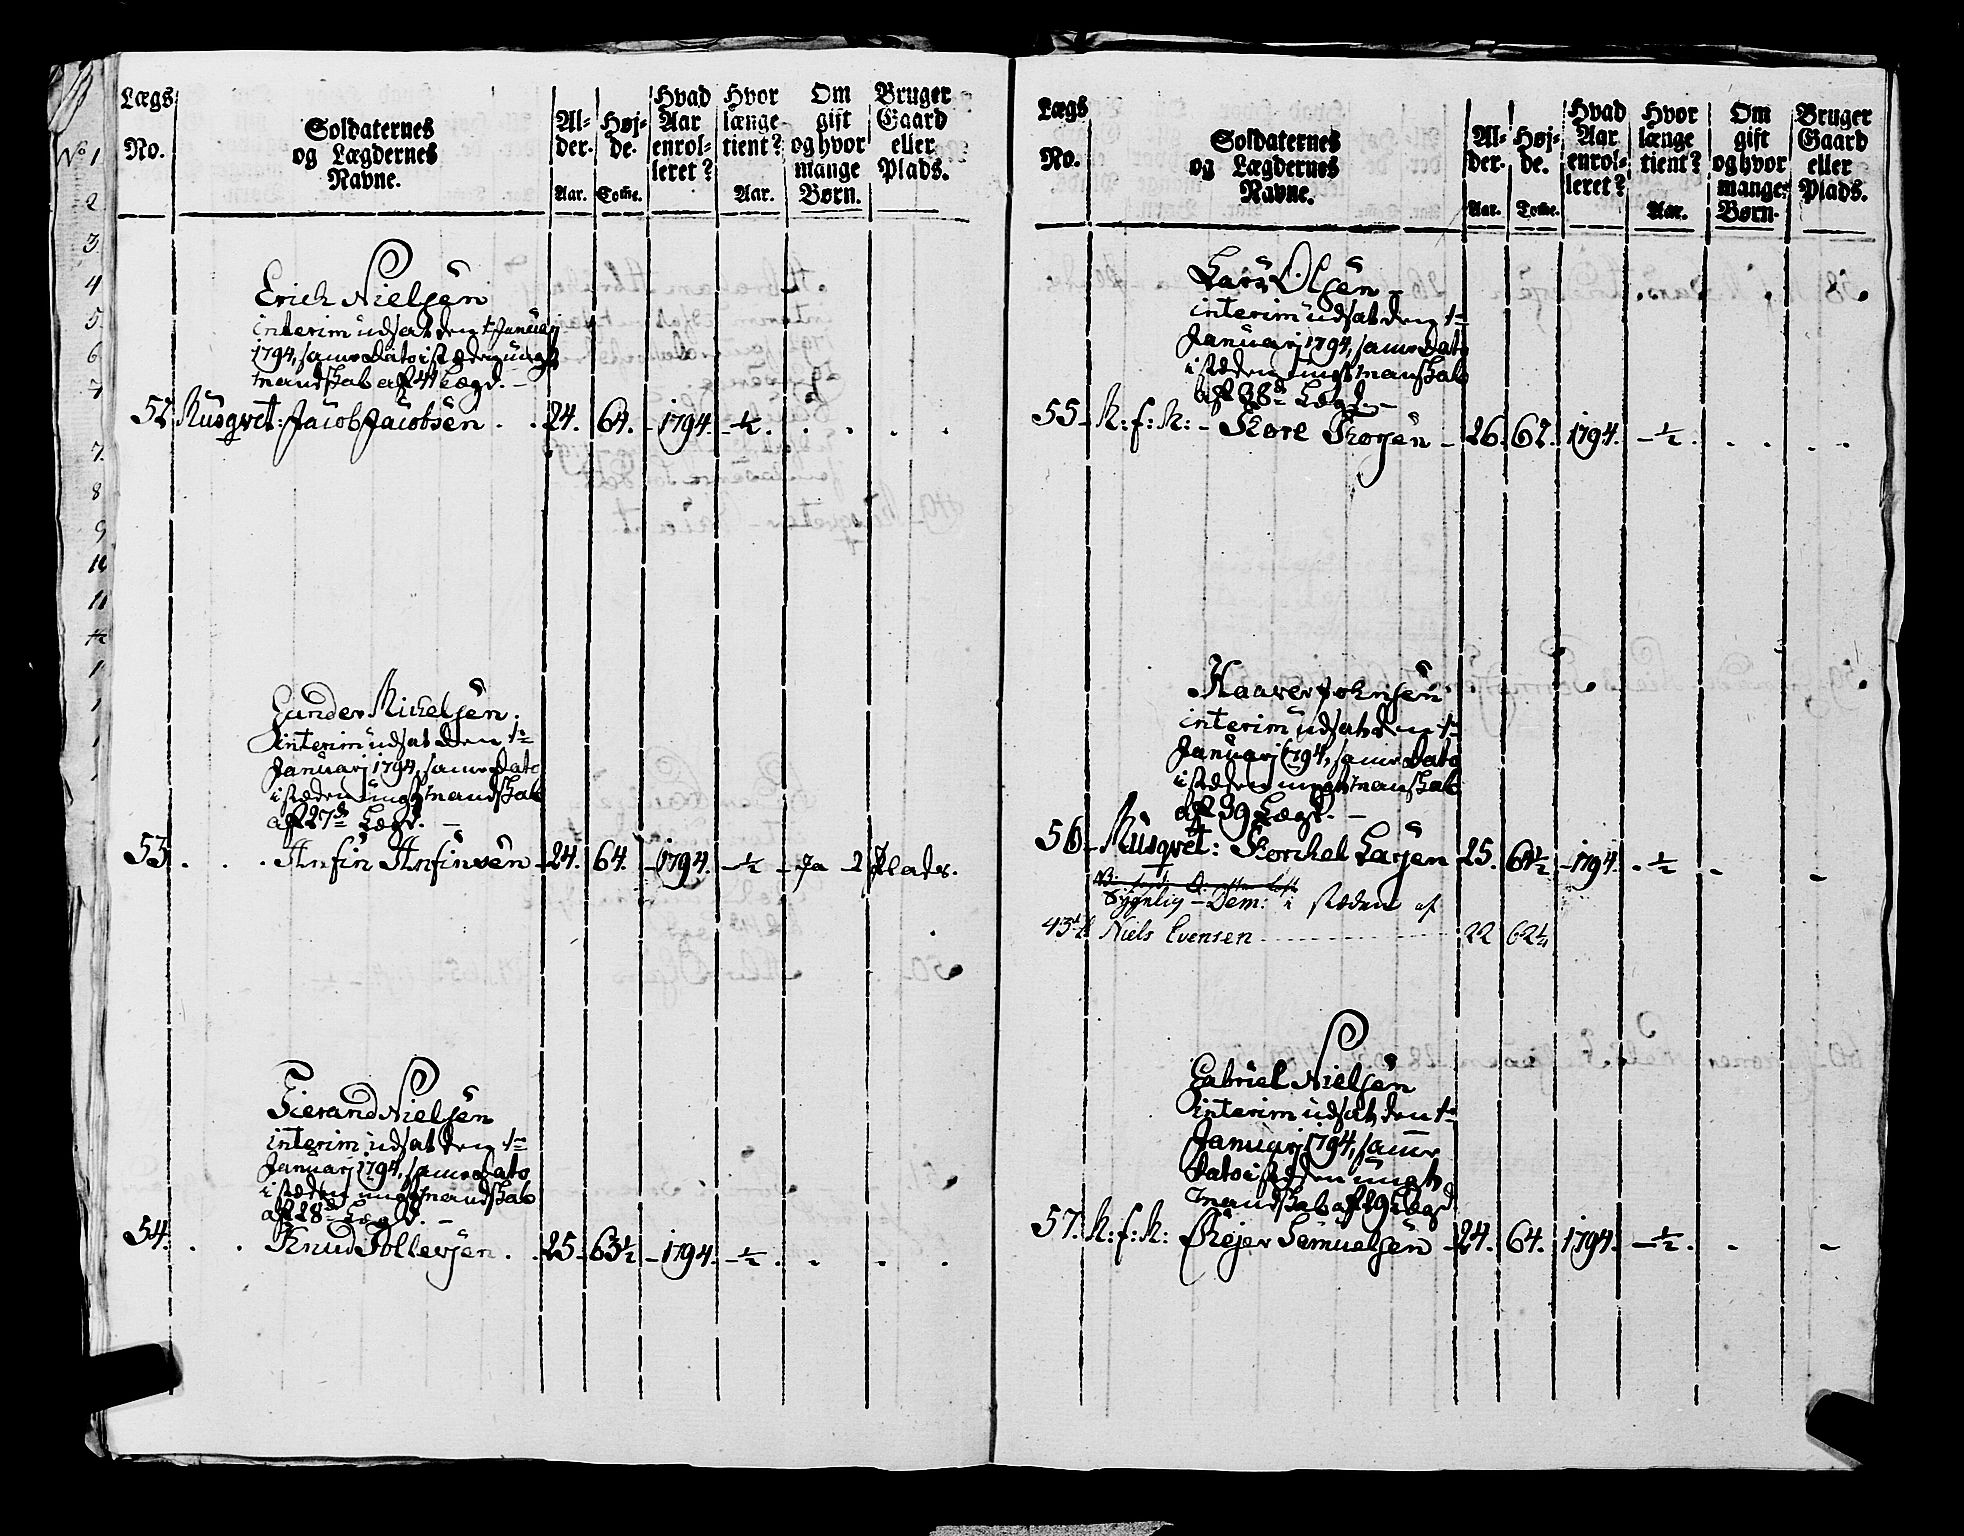 Lægs No.
Soldaternes og Lægdernes Navne.
Al- der. Aar.
Høj- de. Tome.
Hvad Aar enrol- leret?
Hvor længe tient? Aar.
Om gift og hvor mange Børn.
Bruger Gaard eller Plads.
No 1
2
3
4
5
6
7
7.
8
9
10
11
12
1
1
1
1
Erich Nielsen
interim udsat den 1 Januarj
1794, samme Dato i stæden ungt
mandskab af 4 Lægd. –
52 Musqvet: Jacob Jacobsen . . 24. 64. – 1794. – ½ . . . . .
Gunder Michelsen.
interim udsat den 1te
Januarj 1794, samme Dato
i stæden ungt mandskab
af 27de Lægd. –
53. . . . Anfin Anfinsen – 24. 64. – 1794. – ½ – Ja – 2 Plads.
Tierand Nielsen
interim udsat den 1te
Januarj 1794, samme Dato
i stæden ungt mandskab
af 28de Lægd. –
54. . . Knud Tollevsen . . 25 – 63½ – 1794. – ½ . . . .
Lægs No.
Soldaternes og Lægdernes Navne.
Al- der. Aar.
Høj- de. Tome.
Hvad Aar enrol- leret?
Hvor længe tient? Aar.
Om gift og hvor mange Børn.
Bruger Gaard eller Plads.
Lars Olsen –
interim udsat den 1te
Januarj 1794, samme Dato
i stæden ungt manskab
af 38de Lægd –
55 – K: f: K: – Tore Torgen – 26. 62. 1794. – ½ . . . . .
Haaver Johnsen
interim udsat den 1te
Januarj 1794, samme Dato
i stæden ungt manskab
af 39 Lægd. –
56 – Musqvet: Torchel Larsen – 25. 64½ – 1794. . ½ – –
Sygelig – Dem: i stæden af
43de L Niels Evensen 22 62¼
Gabriel Nielsen
interim udsat den 1te
Januarj 1794, samme
Dato i stæden ungt
mandskab af 29 Lægd
57. K: f: K: Reier Semuelsen – 24. 64. 1794. – ½ . – –